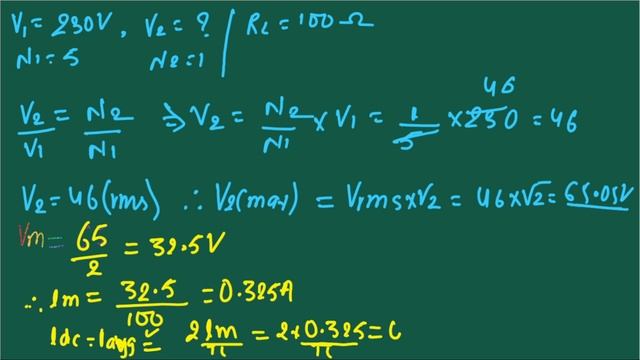 V₁ = 230V, V₂ = ? | R₂ = 100Ω
N₁ = 5 N₂ = 1
46
V₂/V₁ = N₂/N₁ ⇒ V₂ = N₂/N₁ × V₁ = 1/5 × 230 = 46
V₂ = 46 (rms) ∴ V₂(max) = Vrms×√2 = 46×√2 = 65.05V
Vm = 65/2 = 32.5V
∴ Im = 32.5/100 = 0.325A
Idc = Iavg = 2Im/π = 2×0.325/π = 0